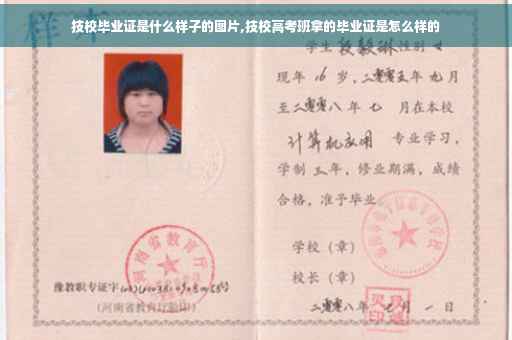 技校毕业证是什么样子的图片,技校高考班拿的毕业证是怎么样的
样本
学生 段毅琳 性别 女
现年 16 岁，二零零五年 九月
至二零零八年 七 月在本校
计算机应用 专业学习，
学制 三 年，修业期满，成绩
合格，准予毕业
学校（章）
校长（章）
河南省教育厅
豫教职专证字
（河南省教育厅验印）
二零零八年 月 一 日